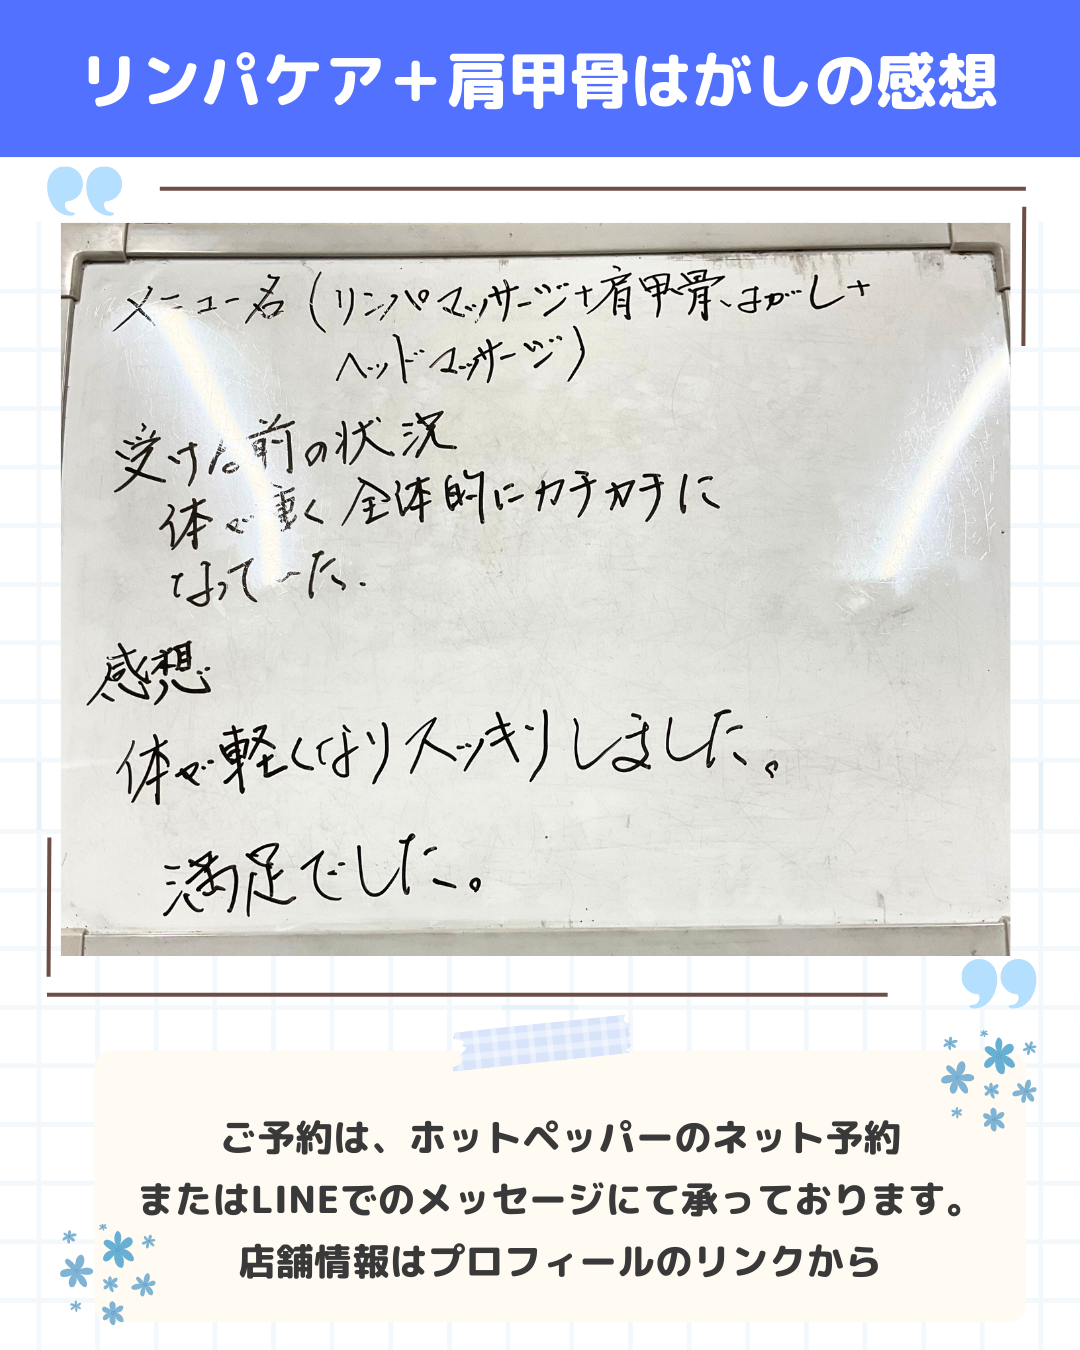 リンパケア＋肩甲骨はがしの感想
メニュー名（リンパマッサージ+肩甲骨はがし+
ヘッドマッサージ）
受ける前の状況
体が重く全体的にカチカチに
なっていた.
感想
体が軽くなりスッキリしました。
満足でした。
ご予約は、ホットペッパーのネット予約
またはLINEでのメッセージにて承っております。
店舗情報はプロフィールのリンクから